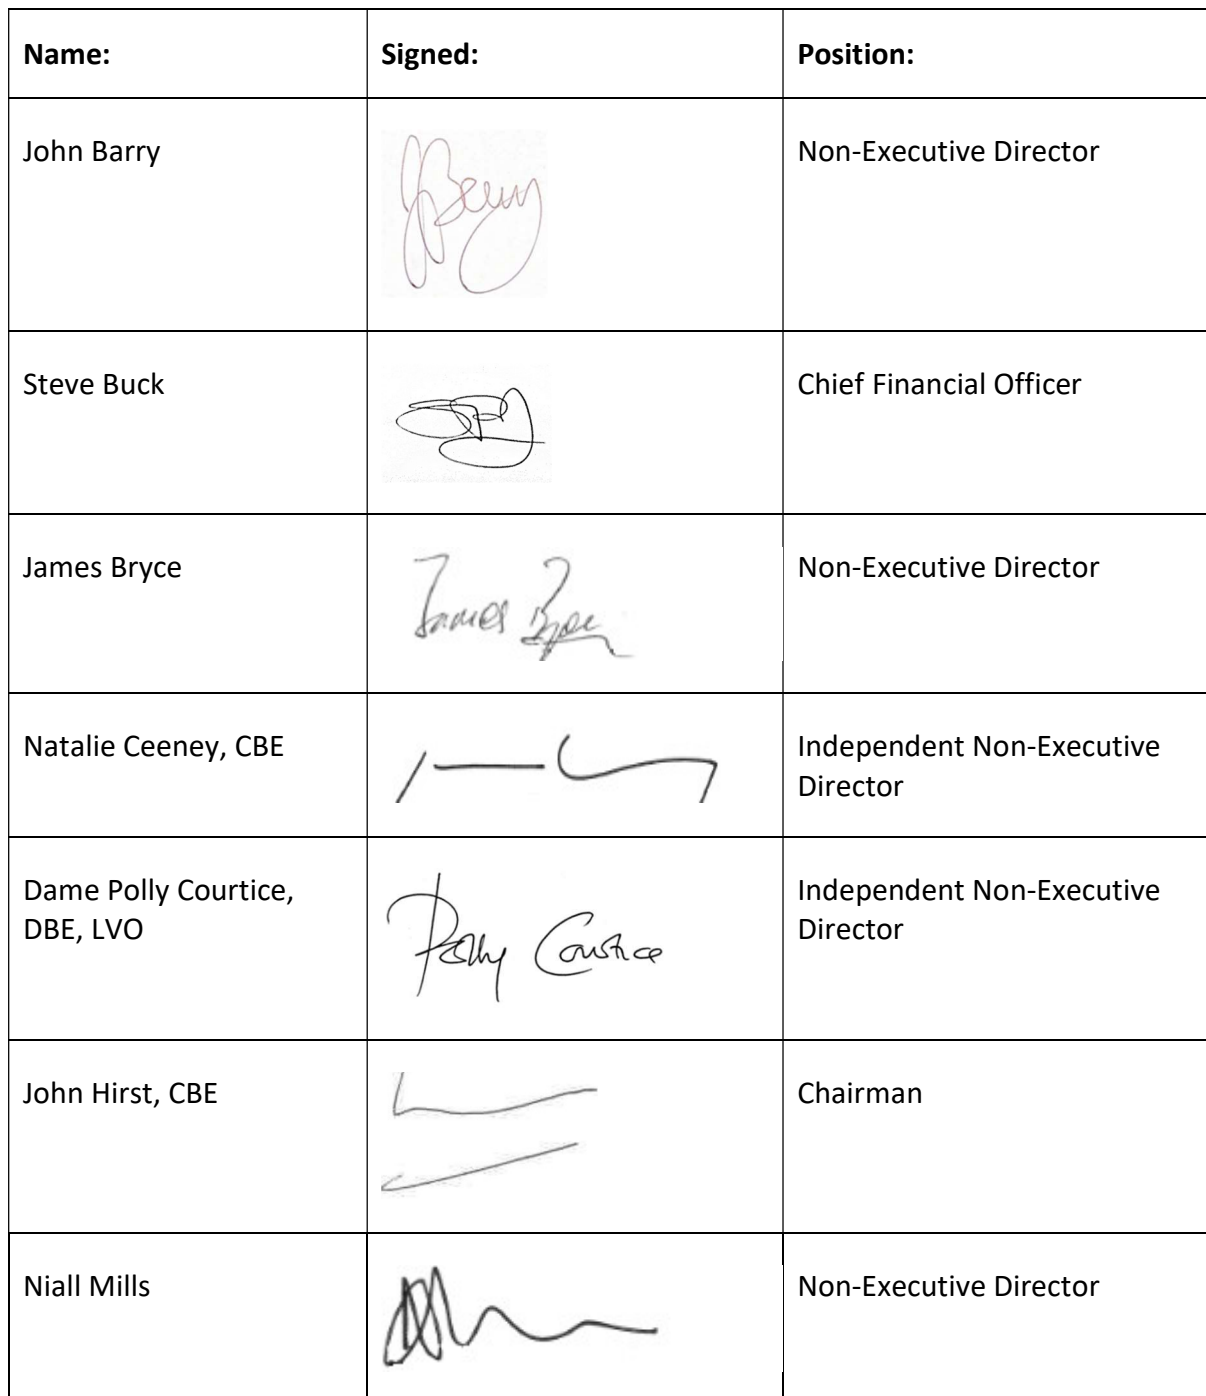 Name: Signed: Position:
John Barry Non-Executive Director
Steve Buck Chief Financial Officer
James Bryce James Bryce Non-Executive Director
Natalie Ceeney, CBE Independent Non-Executive
Director
Dame Polly Courtice, Polly Courtice Independent Non-Executive
DBE, LVO Director
John Hirst, CBE Chairman
Niall Mills Non-Executive Director